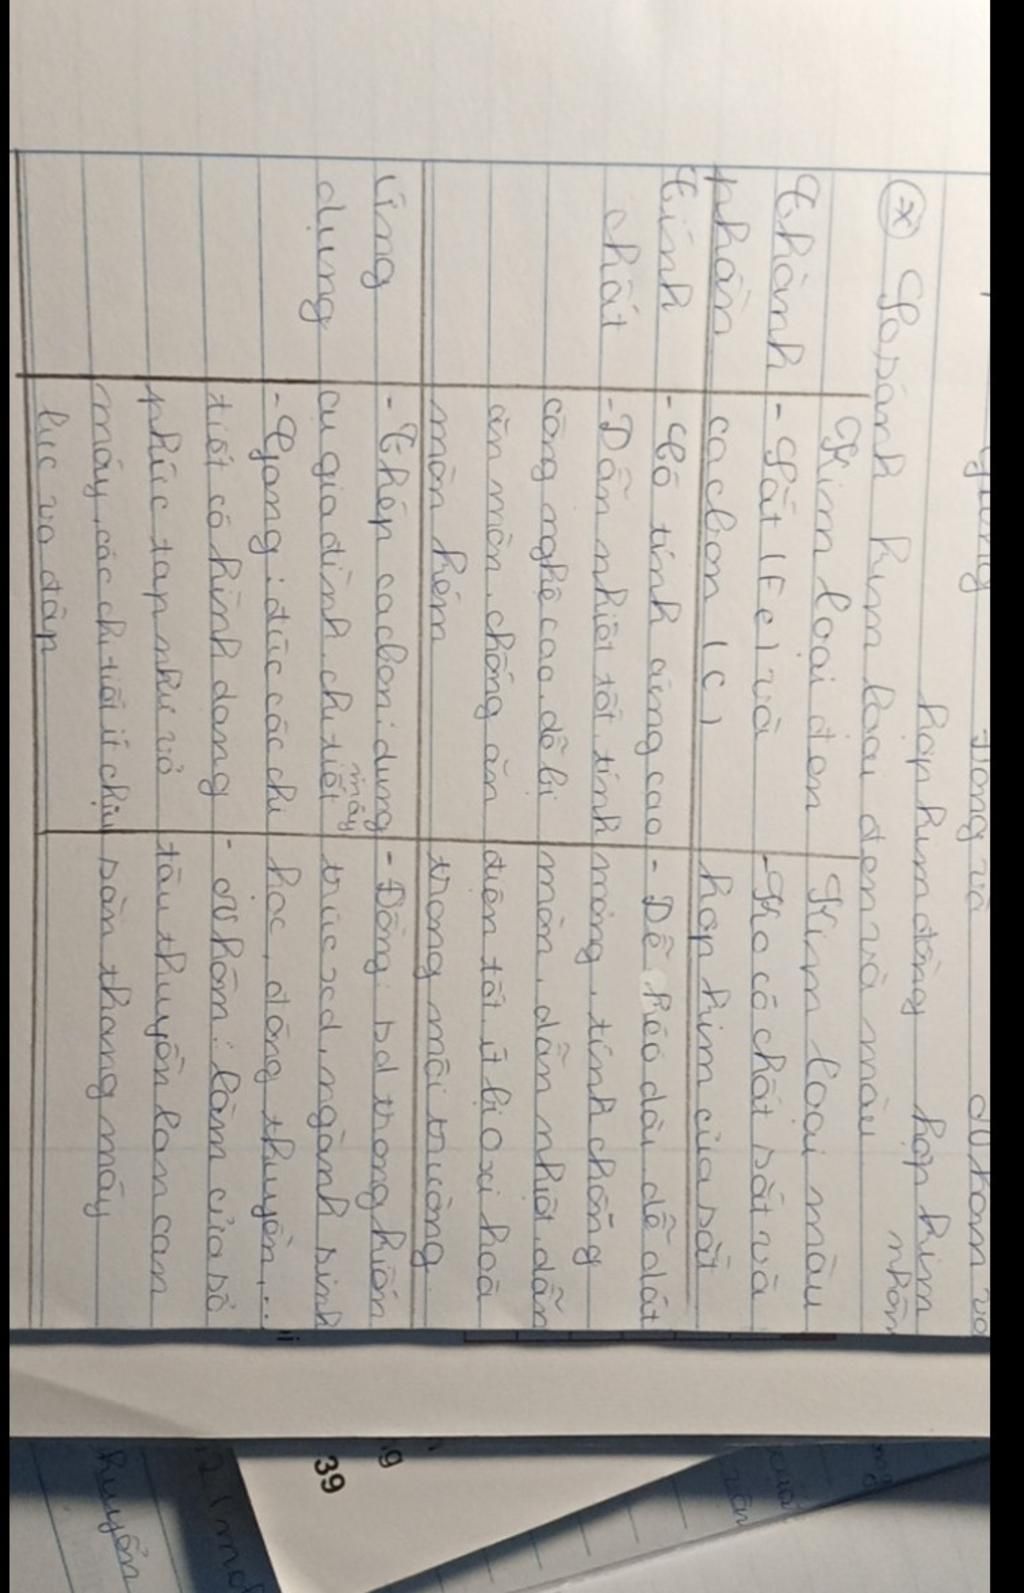 Đồng và nhôm và
hợp kim đồng hợp kim
nhôm
* So sánh kim loại đen và màu
Kim loại đen Kim loại màu
Thành - Sắt (Fe) và - Ko có chất sắt và
phần cacbon (C) hợp kim của sắt
Tính - Có tính cứng cao - Dễ kéo dài, dễ dát
chất - Dẫn nhiệt tốt, tính mỏng, tính chống
công nghệ cao, dễ bị mòn, dẫn nhiệt, dẫn
ăn mòn, chống ăn điện tốt, ít bị oxi hoá
mòn kém trong môi trường
Ứng - Thép cacbon: dụng - Đồng: sd trong kiến
dụng cụ gia đình, chi tiết máy trúc xd, ngành sinh
- Gang: đúc các chi học, đóng thuyền,...
tiết có hình dạng - Nhôm: làm cửa sổ
phức tạp như vỏ tàu thuyền lan can
máy, các chi tiết ít chịu sàn thang máy
lực va đập
39